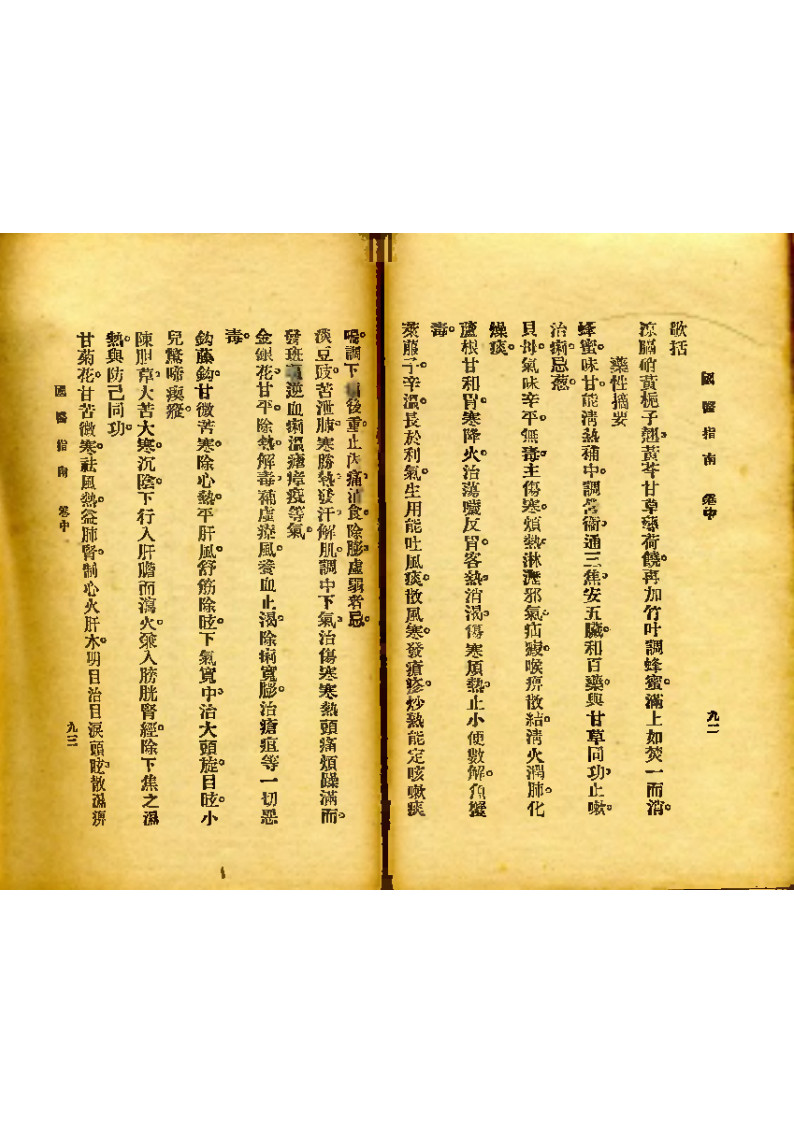 國醫指南 卷中
九二
歌括
涼膈硝黃梔子翹。黃芩甘草薄荷饒。再加竹叶調蜂蜜。滿上如焚一而消。
藥性摘要
蜂蜜。味甘能淸熱補中。調營衞。通三焦。安五臟。和百藥。與甘草同功。止嗽。
治痢。忌葱。
貝母。氣味辛平。無毒。主傷寒。煩熱。淋瀝邪氣。疝瘕。喉痹。散結。淸火。潤肺。化
燥痰。
蘆根甘和胃。寒降火。治蕩嘔反胃。客熱。消渴。傷寒煩熱。止小便數。解魚蟹
毒。
萊菔子。辛溫。長於利氣。生用能吐風痰。散風寒。發瘡疹。炒熱能定咳嗽痰
喘。調下 後重。止內痛。消食。除膨。虛弱者忌。
淡豆豉。苦泄肺。寒勝熱。發汗解肌。調中下氣。治傷寒寒熱頭痛煩躁滿而。
發斑 逆血痢溫瘧瘴疫等氣。
金銀花甘平。除熱解毒。補虛療風。養血止渴。除痢寬膨。治瘡疽等一切惡
毒。
鈎藤鈎。甘微苦寒。除心熱。平肝風。舒筋除眩。下氣寬中。治大頭旋。目眩。小
兒驚啼瘈瘲。
陳胆草。大苦大寒。沉陰。下行入肝膽而瀉火。兼入膀胱腎經。除下焦之濕
熱。與防己同功。
甘菊花。甘苦微寒。祛風熱。益肺腎。制心火肝木。明目治目淚頭眩。散濕痹
國醫指南 卷中
九三